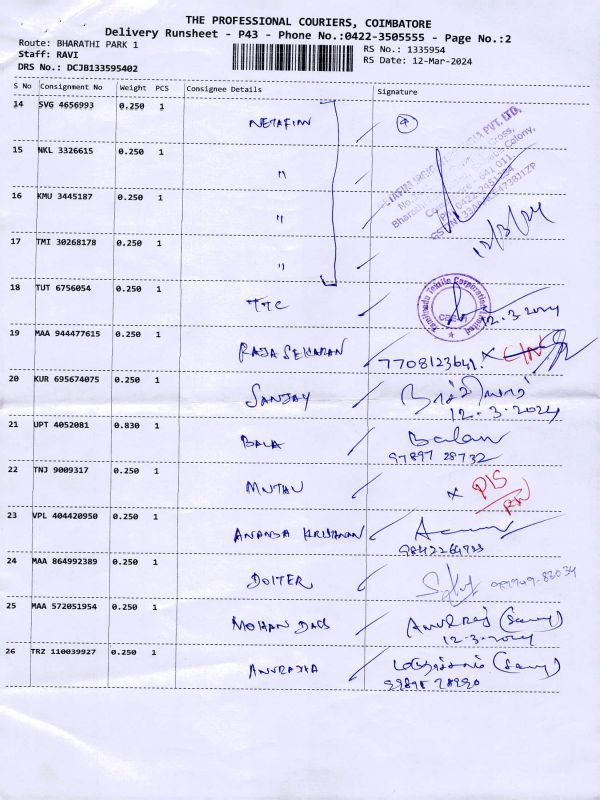 THE PROFESSIONAL COURIERS, COIMBATORE
Delivery Runsheet - P43 - Phone No.:0422-3505555 - Page No.:2
Route: BHARATHI PARK 1 RS No.: 1335954
Staff: RAVI RS Date: 12-Mar-2024
DRS No.: DCJB133595402
S No Consignment No Weight PCS Consignee Details Signature
14 SVG 4656993 0.250 1 NETAFIM
15 NKL 3326615 0.250 1 "
16 KMU 3445187 0.250 1 "
17 TMI 30268178 0.250 1 " 12/3/24
18 TUT 6756054 0.250 1 TTC 12.3.2024
19 MAA 944477615 0.250 1 RAJASEKARAN 7708123641.
20 KUR 695674075 0.250 1 SANJAY
12.3.2024
21 UPT 4052081 0.830 1 BALA Balan
97897 28732
22 TNJ 9009317 0.250 1
23 VPL 404420950 0.250 1 ANANDA KRISHNAN
24 MAA 864992389 0.250 1
25 MAA 572051954 0.250 1 MOHAN DAS
12.3.2024
26 TRZ 110039927 0.250 1 ANURADHA